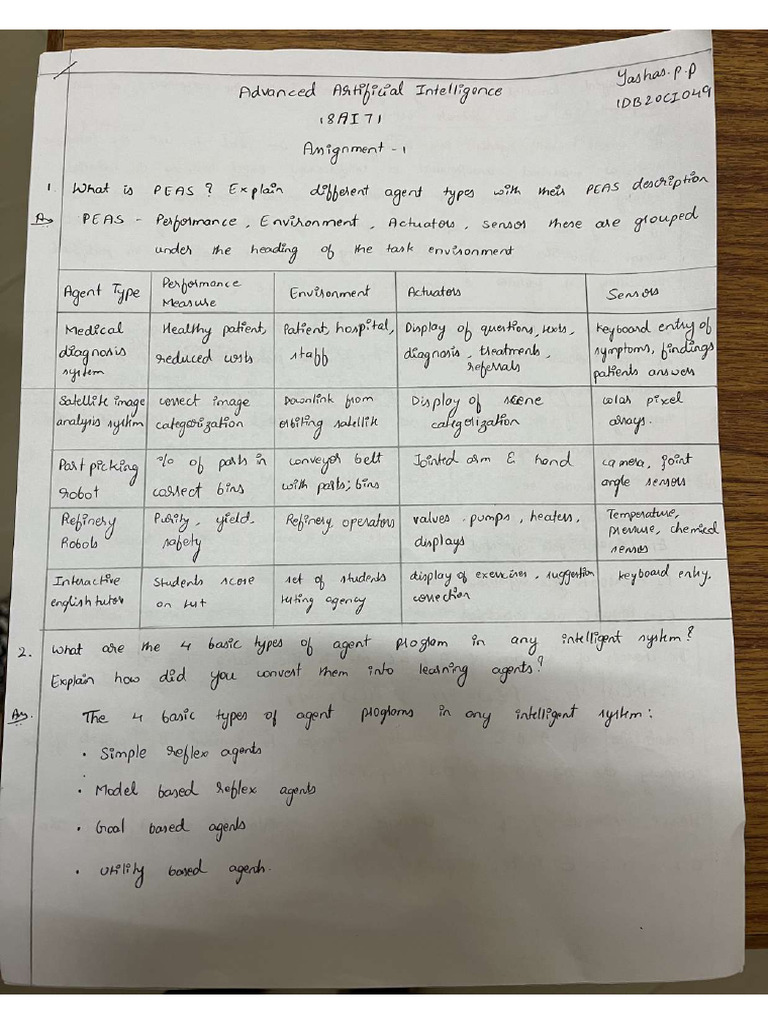 Yashas.P.P
1DB20CI049
Advanced Artificial Intelligence
18AI71
Assignment - 1
1. What is PEAS? Explain different agent types with their PEAS description
Ans PEAS - Performance, Environment, Actuators, sensor these are grouped
under the heading of the task environment
Agent Type | Performance Measure | Environment | Actuators | Sensors
Medical diagnosis system | Healthy patient, reduced costs | Patient, hospital, staff | Display of questions, tests, diagnosis, treatments, referrals | Keyboard entry of symptoms, findings patients answers
Satellite image analysis system | correct image categorization | Downlink from orbiting satellite | Display of scene categorization | color pixel arrays.
Part picking robot | % of parts in correct bins | conveyor belt with parts; bins | Jointed arm & hand | camera, joint angle sensors
Refinery Robots | Purity, yield, safety | Refinery, operators | valves. pumps, heaters, displays | Temperature, pressure, chemical senses
Interactive english tutor | Students score on test | set of students testing agency | display of exercises, suggestion correction | keyboard entry.
2. What are the 4 basic types of agent program in any intelligent system?
Explain how did you convert them into learning agents?
Ans. The 4 basic types of agent programs in any intelligent system:
• Simple reflex agents
• Model based reflex agents
• Goal based agents
• Utility based agents.